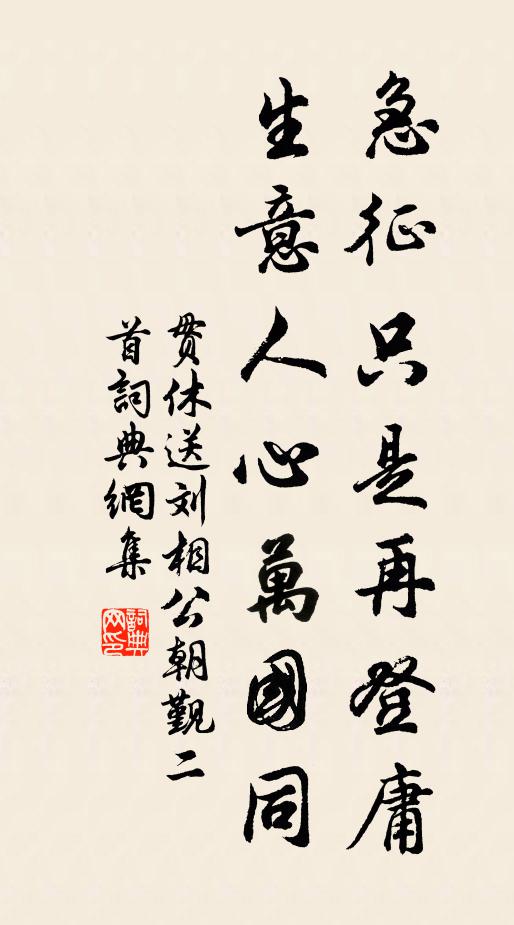 急征只是再登庸
生意人心萬國同
贯休送刘相公朝覲二
首詞典網集
詞典
网印